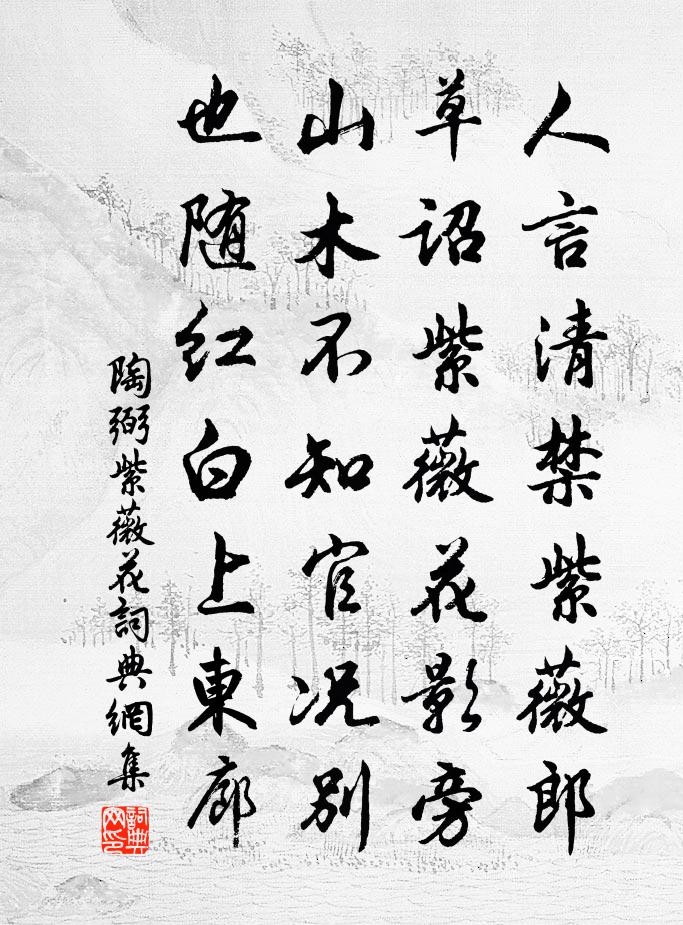 人言清禁紫薇郎
草诏紫薇花影旁
山木不知官况别
也随红白上東廊
陶弼紫薇花詞典網集
詞典网印